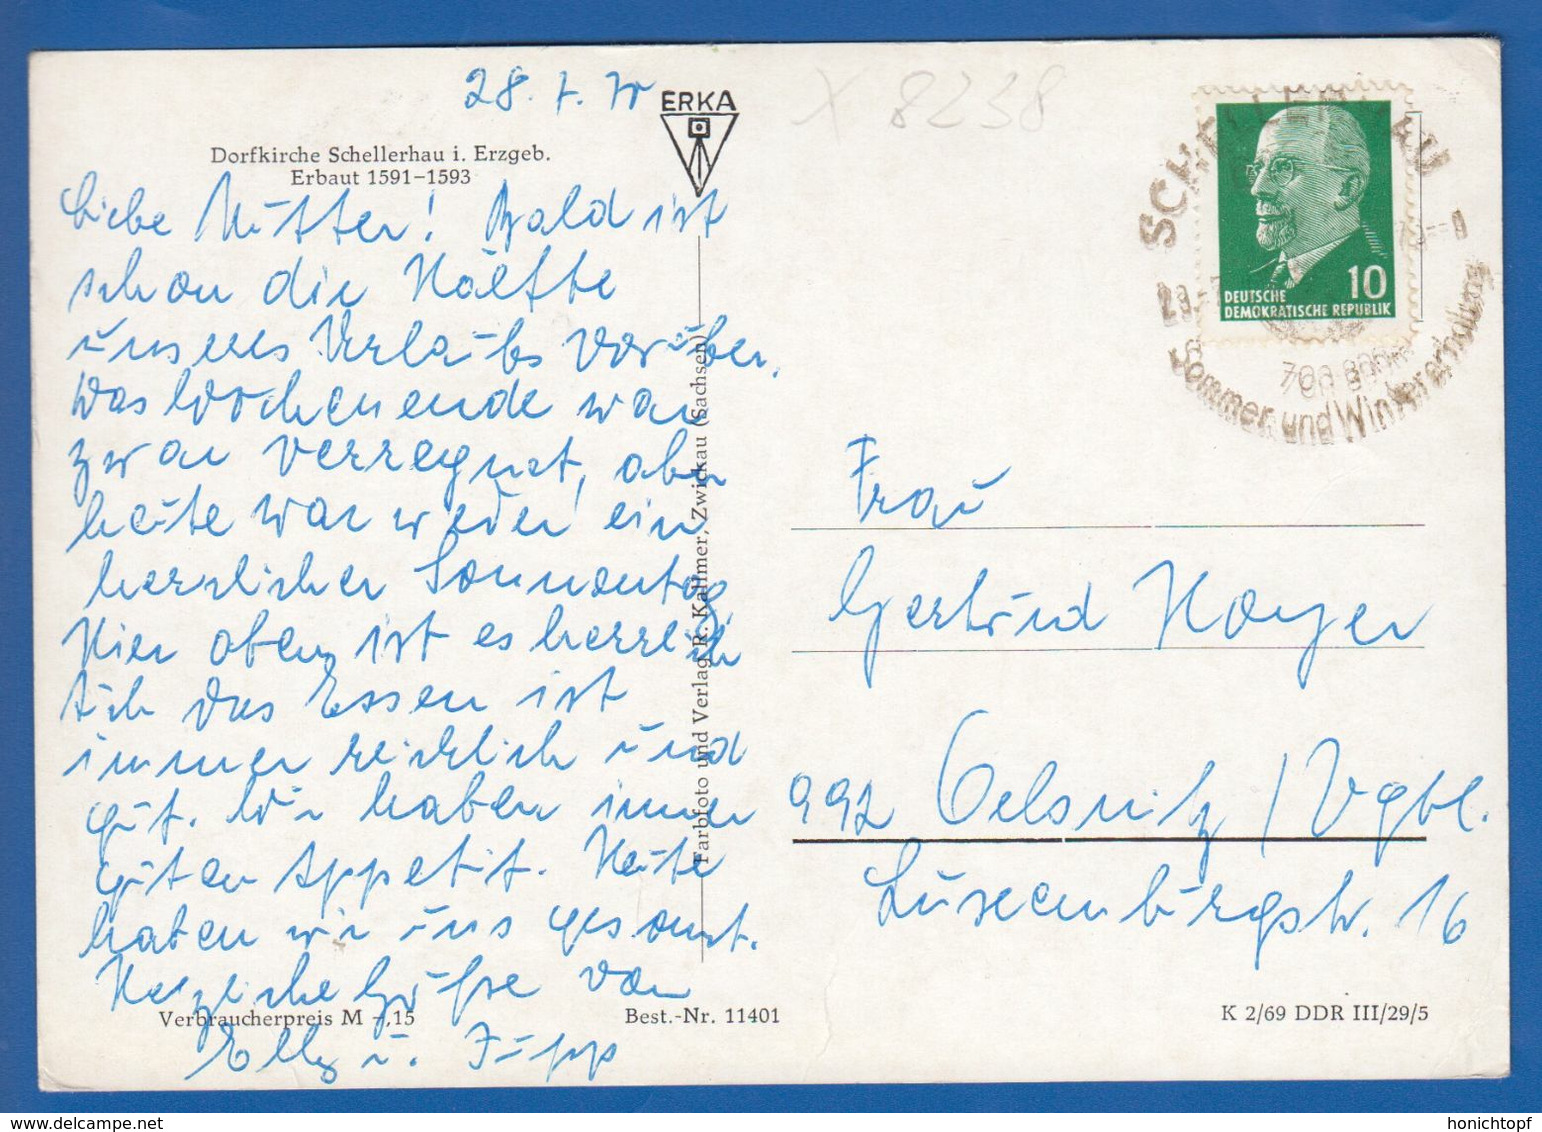 28. 7. 70
ERKA
X 8238
Dorfkirche Schellerhau i. Erzgeb.
Erbaut 1591–1593
Liebe Mutter! Bald ist
schon die Hälfte
unseres Urlaubs vorüber.
Das Wochenende war
zwar verregnet, aber
heute war wieder ein
herrlicher Sonnentag.
Hier oben ist es herrlich
Auch das Essen ist
immer reichlich und
gut. Wir haben immer
guten Appetit. Heute
haben wir uns gesonnt.
Herzliche Grüße von
Elly u. Jupp
Verbraucherpreis M –,15
Best.-Nr. 11401
Farbfoto und Verlag R. Kallmer, Zwickau (Sachsen)
SCHELLERHAU
DEUTSCHE
DEMOKRATISCHE REPUBLIK
10
Sommer und Wintererholung
Frau
Gertrud Hoyer
992 Oelsnitz / Vgtl.
Luxemburgstr. 16
K 2/69 DDR III/29/5
honichtopf